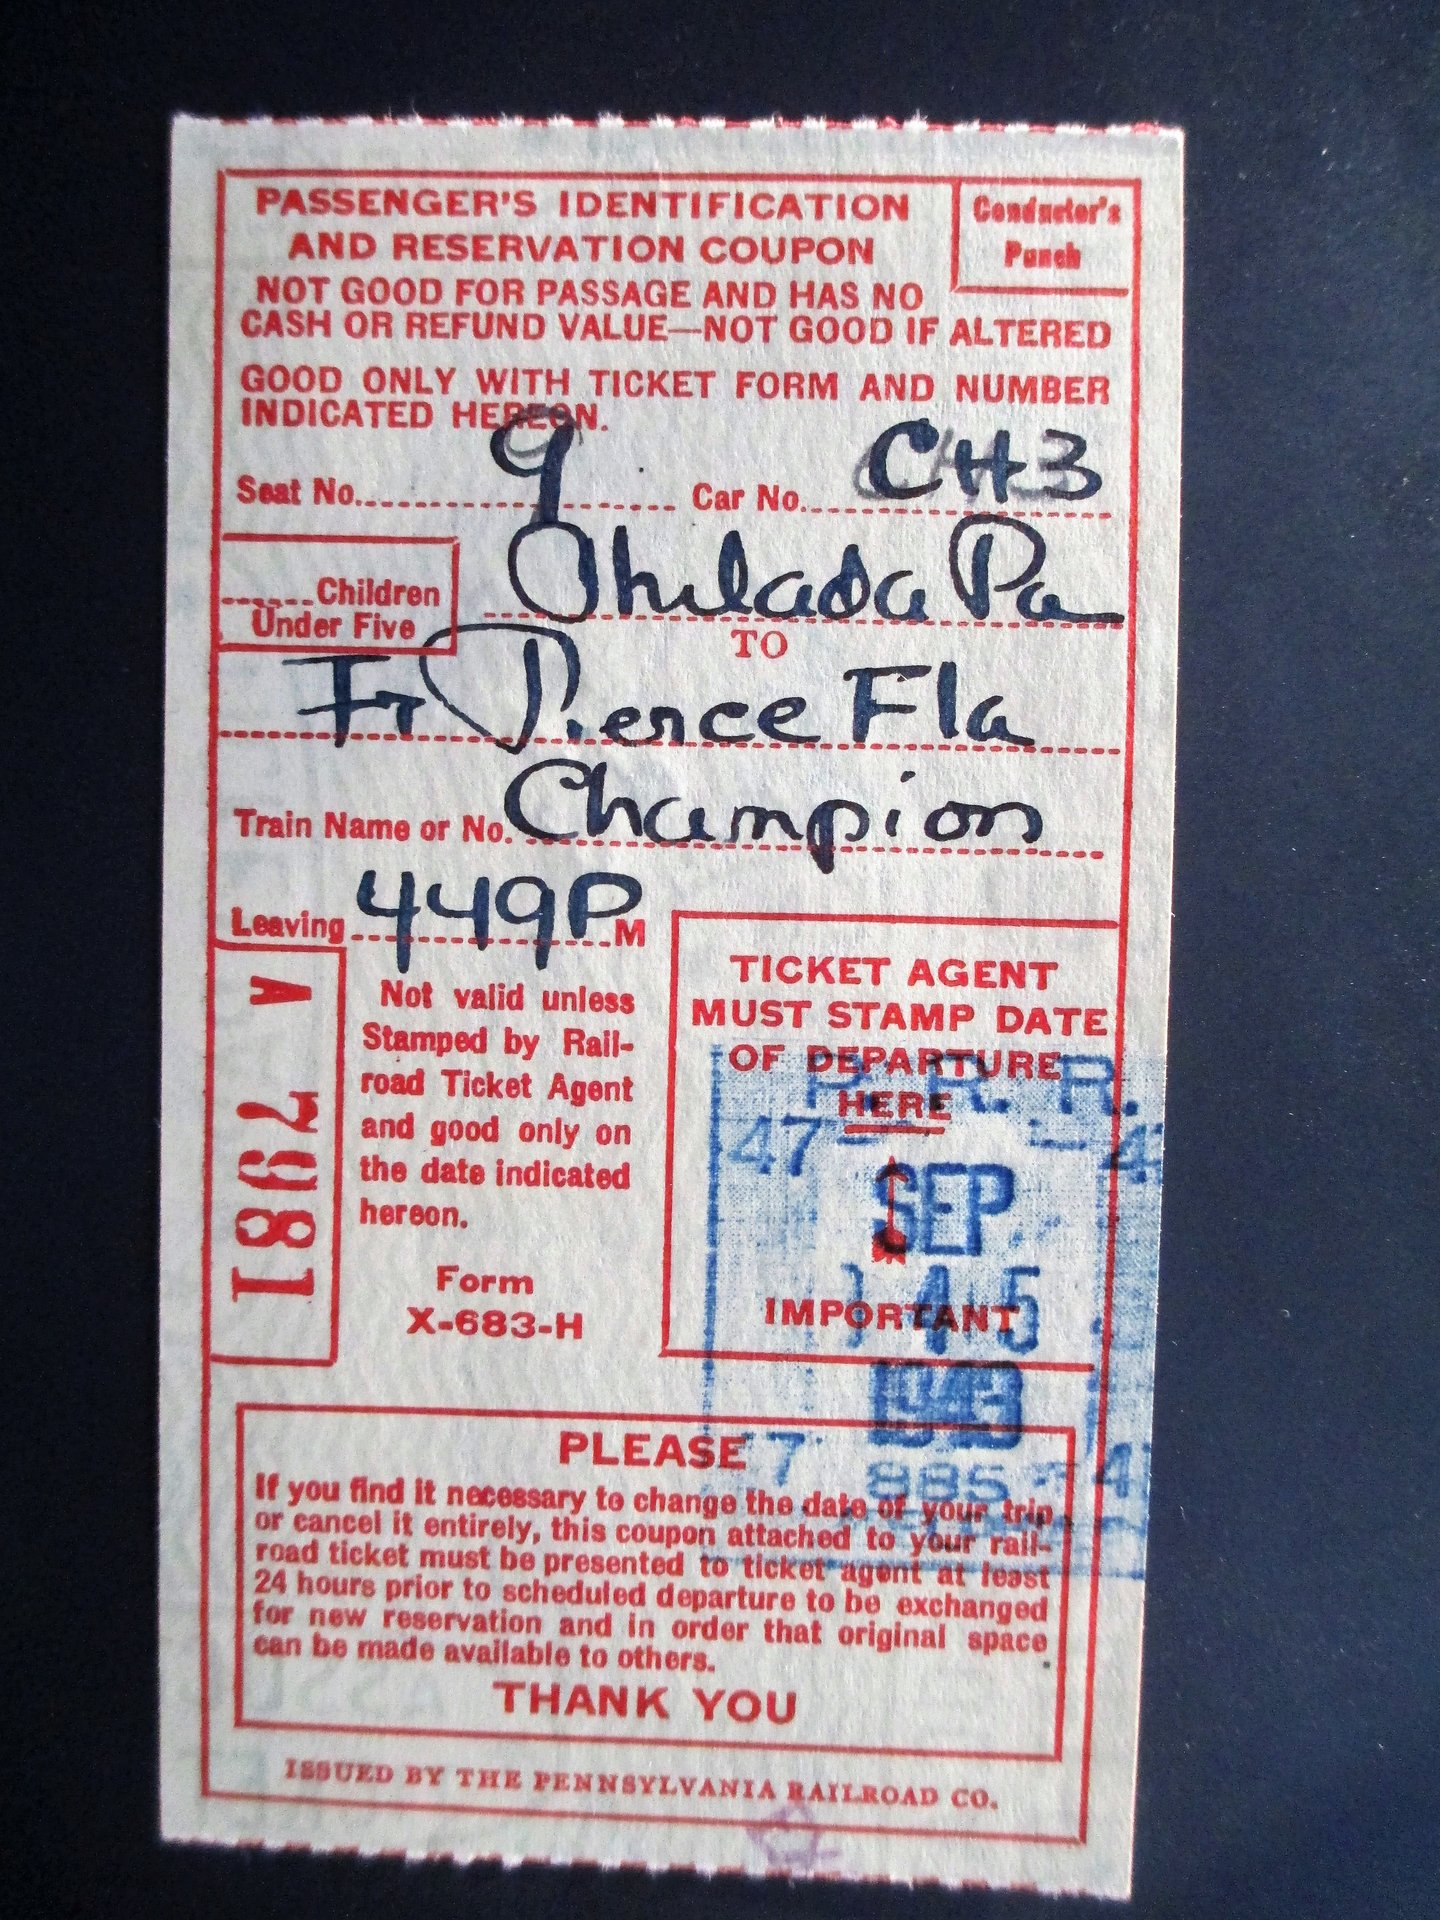 PASSENGER'S IDENTIFICATION
AND RESERVATION COUPON
Conductor's
Punch
NOT GOOD FOR PASSAGE AND HAS NO
CASH OR REFUND VALUE—NOT GOOD IF ALTERED
GOOD ONLY WITH TICKET FORM AND NUMBER
INDICATED HEREON.
Seat No. 9 Car No. CH3
Children
Under Five
Philada Pa
TO
Ft Pierce Fla
Train Name or No. Champion
Leaving 449P M
A 7981
Not valid unless
Stamped by Rail-
road Ticket Agent
and good only on
the date indicated
hereon.
Form
X-683-H
TICKET AGENT
MUST STAMP DATE
OF DEPARTURE
HERE
IMPORTANT
P. R. R.
47
SEP
1943
885
PLEASE
If you find it necessary to change the date of your trip
or cancel it entirely, this coupon attached to your rail-
road ticket must be presented to ticket agent at least
24 hours prior to scheduled departure to be exchanged
for new reservation and in order that original space
can be made available to others.
THANK YOU
ISSUED BY THE PENNSYLVANIA RAILROAD CO.